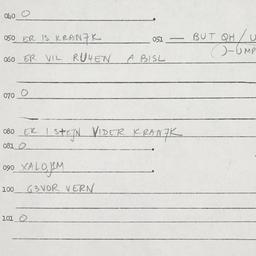 040 O
050 ER IS KRANҔK 051 — BUT QH/U
060 ER VIL RU4EN A BISL ( )-UMP
070 O
080 ER I STEJN VIDER KRANҔK
081 O
090 XALOJEM
100 G3VOR VERN
101 O